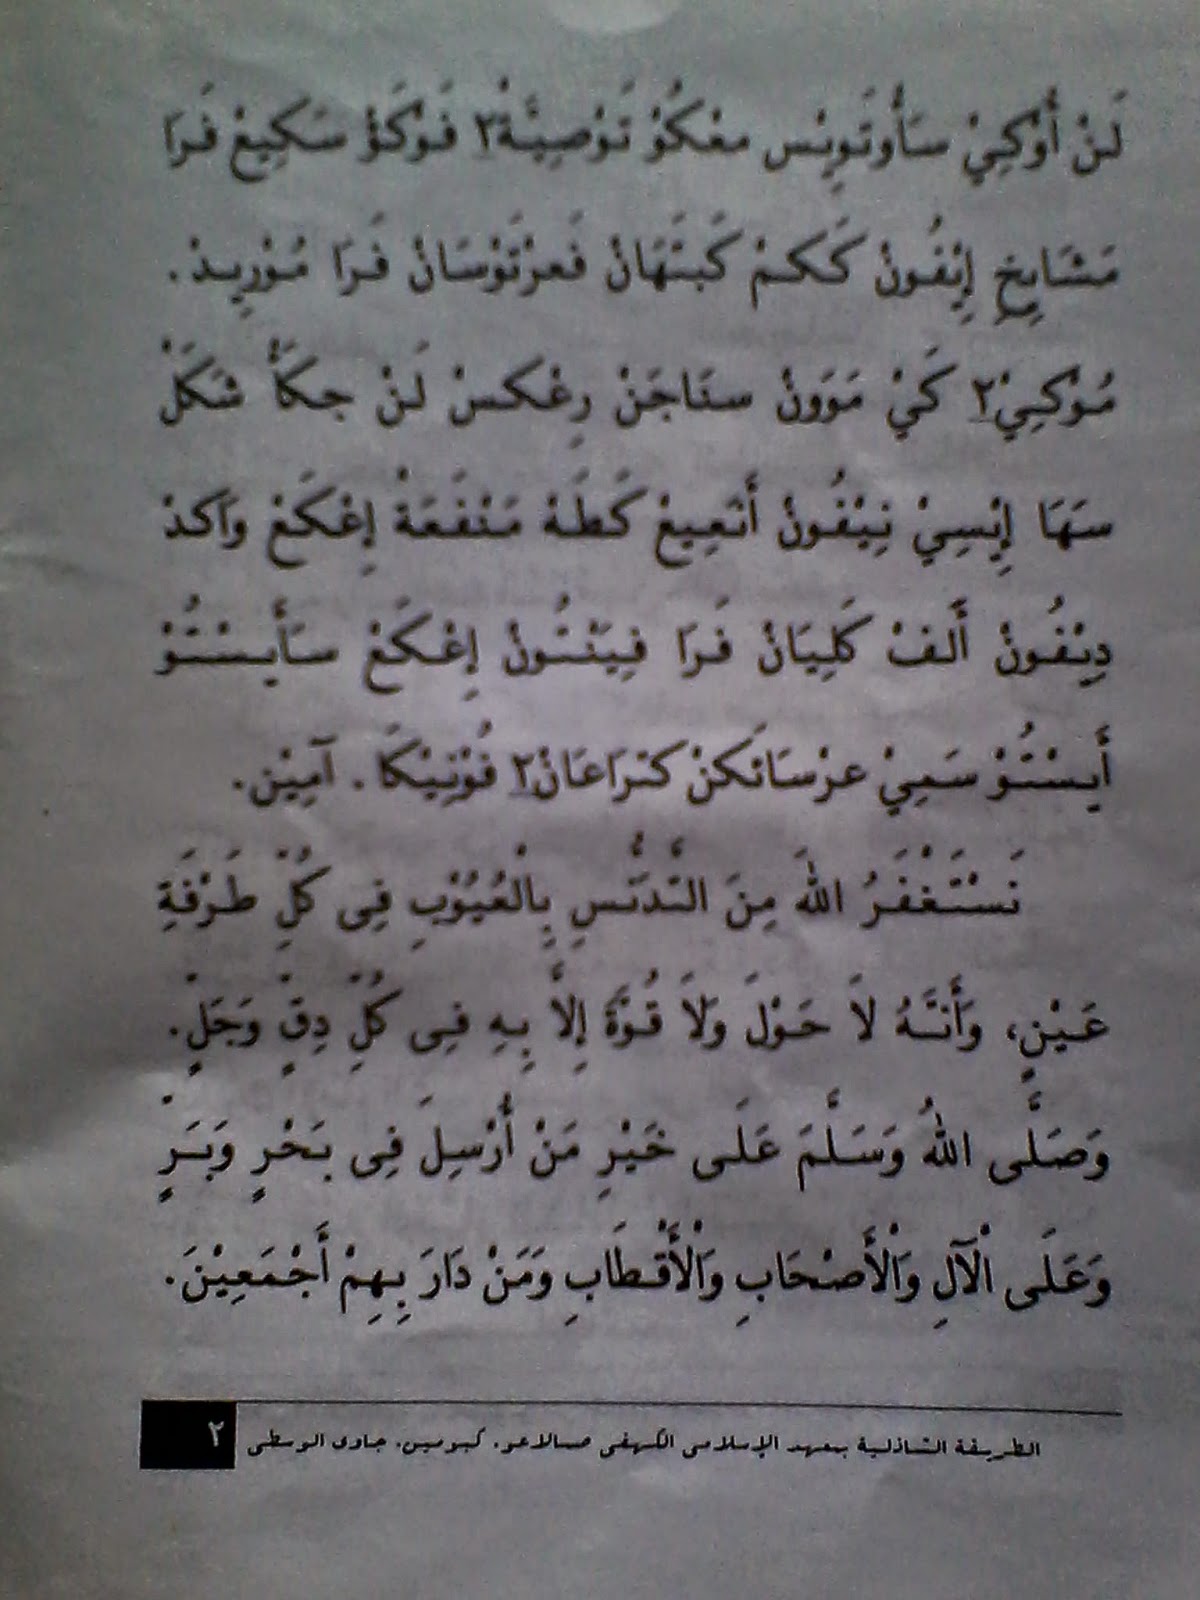 لَنْ أُوْكِيْ سَأُوتَوِيْس معْكُوْ تَوْصِيَّةْ٢ فَوْكَؤْ سَكِيعْ فَرَا
مَشَايِخِ إِيْفُونْ كَكَمْ كَبتْهَانْ فَعرْتَوْسَانْ فَرَا مُوْرِيدْ.
مُوْكِيْ٢ كَيْ مَوَونْ سنَاجَنْ رِعْكَسْ لَنْ جكَأْ شَكَلْ
سهَا إِيْسِيْ نِيْفُونْ أَنَعِيعْ كَطَهْ مَنْفَعَةْ إِعْكَعْ وَاكدْ
دِيْفُونْ أَلفْ كَلِيَانْ فَرَا فِيَنْتُونْ إِعْكَعْ سَأَيسْتُوْ
أَيسْتُوْ سَمِيْ عرْسَائكنْ كترَاعَانْ٢ فُوْنِيْكَا. آمِيْن.
نَسْتَغْفَرُ اللهَ مِنَ التَّدَنُّسِ بِالْعُيُوْبِ فِى كُلِّ طَرْفَةِ
عَيْنٍ، وَأَنَّهُ لاَ حَوْلَ وَلاَ قُوَّةَ إِلاَّ بِهِ فِى كُلِّ دِقٍّ وَجَلٍّ.
وَصَلَّى اللهُ وَسَلَّمَ عَلَى خَيْرِ مَنْ أُرْسِلَ فِى بَحْرٍ وَبَرٍّ
وَعَلَى الْآلِ وَالْأَصْحَابِ وَالْأَقْطَابِ وَمَنْ دَارَ بِهِمْ أَجْمَعِيْنَ.
الطريقة الشاذلية بمعهد الإسلامى الكهفى صسالاعو. كبومين. جاوى الوسطى ٢